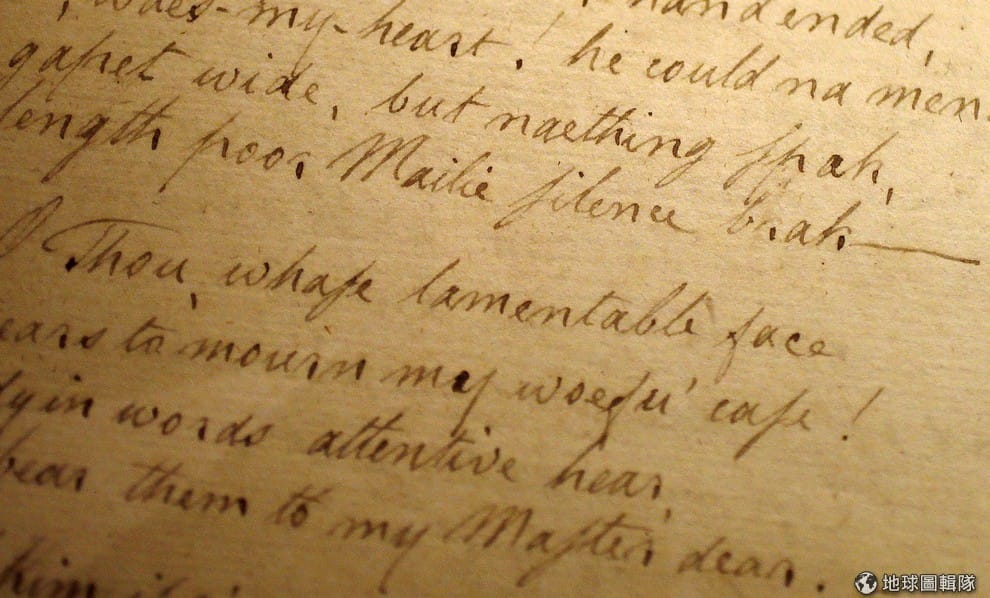 , waes-my-heart! he could na men
hand ended,
gapet wide, but naething ſpak,
length poor Mailie ſilence brak—
O Thou, whaſe lamentable face
ears to mourn my woefu' caſe!
dyin words attentive hear,
bear them to my Maſter dear.
him
地球圖輯隊